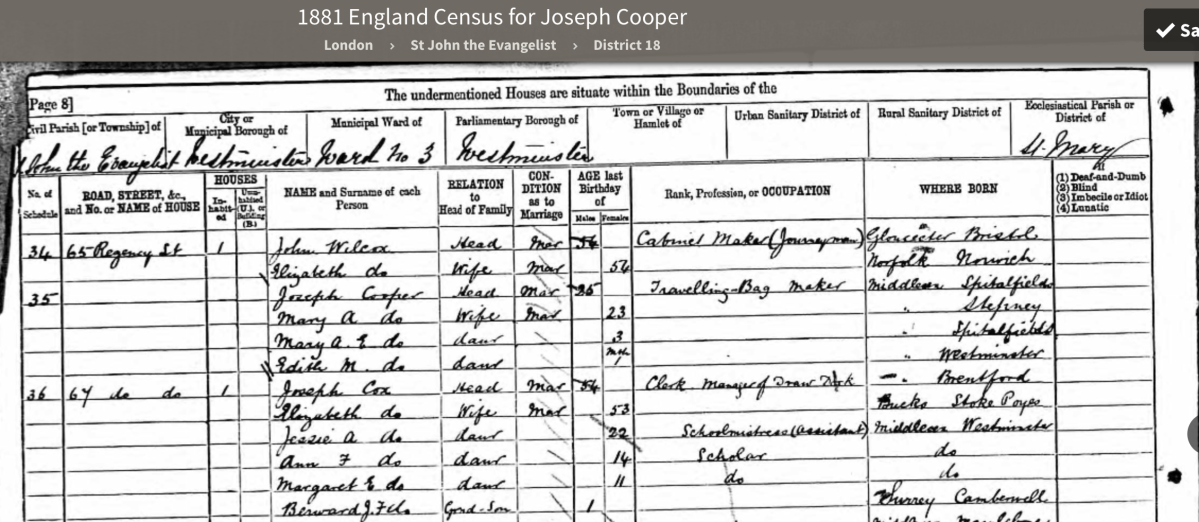 1881 England Census for Joseph Cooper
London › St John the Evangelist › District 18
✔ Sa
Page 8]
The undermentioned Houses are situate within the Boundaries of the
Civil Parish [or Township] of
City or Municipal Borough of
Municipal Ward of
Parliamentary Borough of
Town or Village or Hamlet of
Urban Sanitary District of
Rural Sanitary District of
Ecclesiastical Parish or District of
St John the Evangelist Westminster Ward No 3 Westminster St. Mary
No. of Schedule
ROAD, STREET, &c., and No. or NAME of HOUSE
HOUSES
In-habit-ed
Unin-habited (U.), or Building (B.)
NAME and Surname of each Person
RELATION to Head of Family
CON-DITION as to Marriage
AGE last Birthday of
Males Females
Rank, Profession, or OCCUPATION
WHERE BORN
If
(1) Deaf-and-Dumb
(2) Blind
(3) Imbecile or Idiot
(4) Lunatic
34 65 Regency St 1 John Wilcox Head Mar Cabinet Maker (Journeyman) Gloucester Bristol
Elizabeth do Wife Mar Norfolk Norwich
35 Joseph Cooper Head Mar 25 Travelling-Bag Maker Middlesex Spitalfields
Mary A do Wife Mar 23 " Stepney
Mary A. E do daur 3 " Spitalfields
Edith M. do daur Mths 1 " Westminster
36 67 do do 1 Joseph Cox Head Mar 54 Clerk Manager of Brentford
Elizabeth do Wife Mar 53 Bucks Stoke Poges
Jessie A do daur 22 Schoolmistress (Assistant) Middlesex Westminster
Ann F do daur 14 Scholar do
Margaret E do daur 11 do do
Berward J. F do Grnd-Son 1 Surrey Camberwell